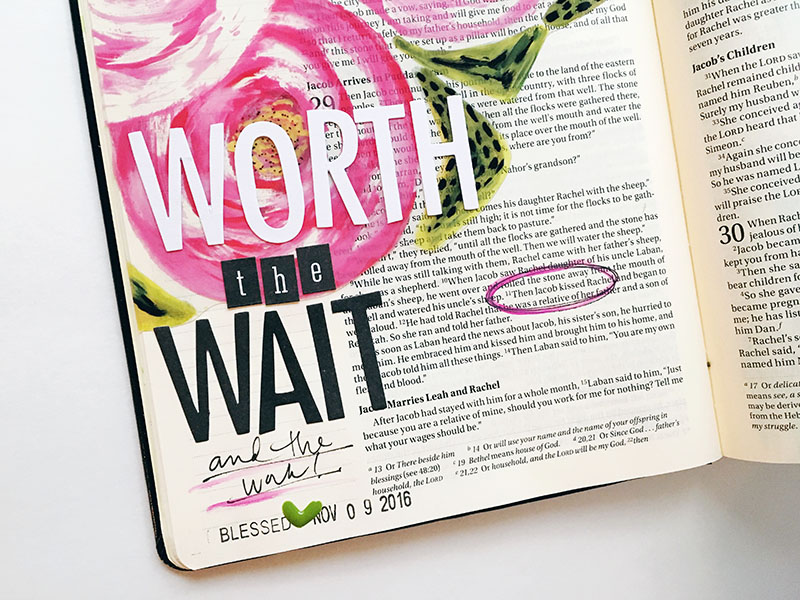 WORTH
the
WAIT
and the
work!
BLESSED NOV 09 2016
the city
Jacob made a vow, saying, "If God will
I am taking and will give me food to eat
to my father's household, then the LORD will be my God
this stone that I have set up as a pillar will be God's house, and of all that
you give me I will give you
Jacob Arrives in Paddan
29 Then Jacob continued to the land of the eastern
peoples. in the country, with three flocks of
were watered from that well. The stone
When all the flocks were gathered there,
from the well's mouth and water the
its place over the mouth of the well.
where are you from?"
Nahor's grandson?"
comes his daughter Rachel with the sheep."
is still high; it is not time for the flocks to be gath-
sheep and take them back to pasture."
they replied, "until all the flocks are gathered and the stone has
rolled away from the mouth of the well. Then we will water the sheep."
9While he was still talking with them, Rachel came with her father's sheep,
for was a shepherd. 10When Jacob saw Rachel daughter of his uncle Laban,
sheep, he went over and rolled the stone away from the mouth of
the well and watered his uncle's sheep. 11Then Jacob kissed Rachel and began to
weep aloud. 12He had told Rachel that he was a relative of her father and a son of
Rebekah. So she ran and told her father.
soon as Laban heard the news about Jacob, his sister's son, he hurried to
meet him. He embraced him and kissed him and brought him to his home, and
Jacob told him all these things. 14Then Laban said to him, "You are my own
flesh and blood."
Jacob Marries Leah and Rachel
After Jacob had stayed with him for a whole month, 15Laban said to him, "Just
because you are a relative of mine, should you work for me for nothing? Tell me
what your wages should be."
a 13 Or There beside him b 14 Or will use your name and the name of your offspring in
blessings (see 48:20) c 19 Bethel means house of God. d 20,21 Or Since God . . . father's
household, the LORD e 21,22 Or household, and the LORD will be my God. 22then
daughter Rachel
for Rachel was greater
seven years.
Jacob's Children
31When the LORD saw
Rachel remained child
named him Reuben,
Surely my husband w
33She conceived a
the LORD heard that
Simeon.c
34Again she conce
my husband will be
So he was named L
35She conceived
will praise the LOR
dren.
30 When Rach
jealous of h
2Jacob became
kept you from ha
3Then she sa
bear children fo
4So she gave
became pregn
me; he has lis
him Dan.f
7Rachel's s
Rachel said,
named him N
a 17 Or delica
means see, a s
may be derive
from the Heb
my struggle.